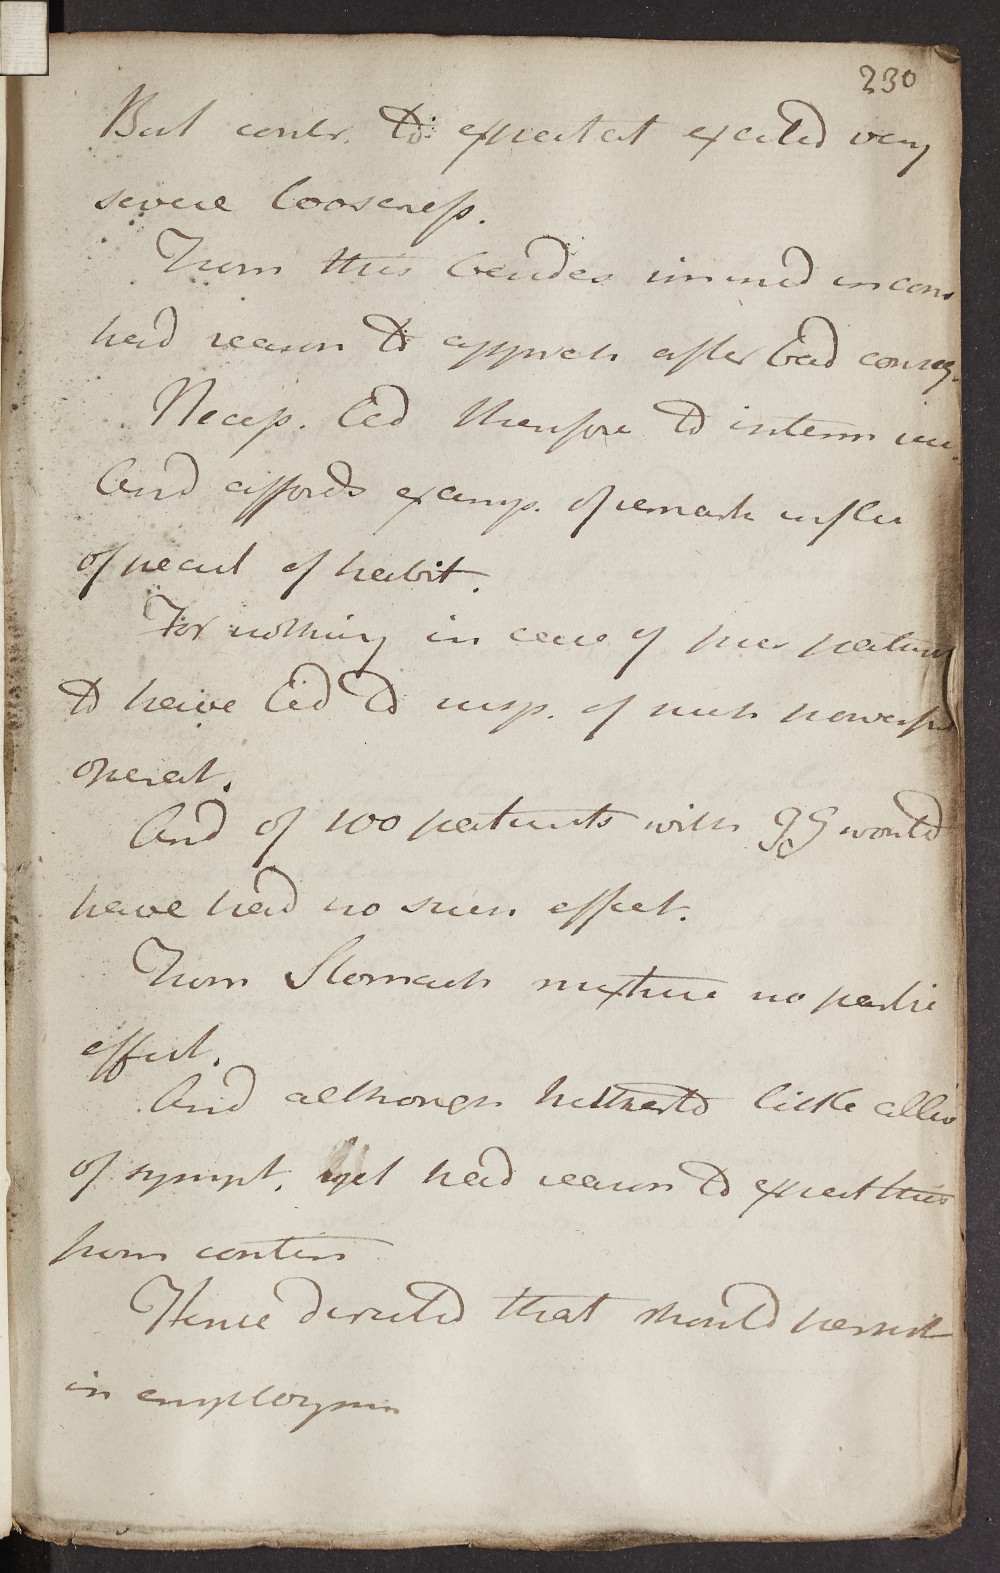 230
But contr. to expectat excited very
severe looseness.
From this besides immed incon
had reason to appreh after bad conseq.
Necess. led therefore to interm
And affords examp. of remark influ
of pecul of habit.
For nothing in case of
to have led to susp. of such powerful
operat.
And of 100 patients with would
have had no such effect.
From Stomach mixture no partic
effect.
And although hitherto little allev
of sympt. yet had reason to expect this
from contin
Hence directed that should persist
in employmn